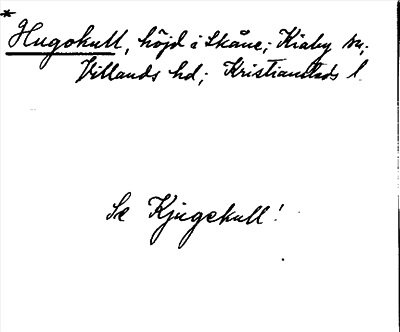 *
Hugokull, höjd i Skåne; Kiaby sn;
Villands hd; Kristianstads l.
Se Kjugekull!